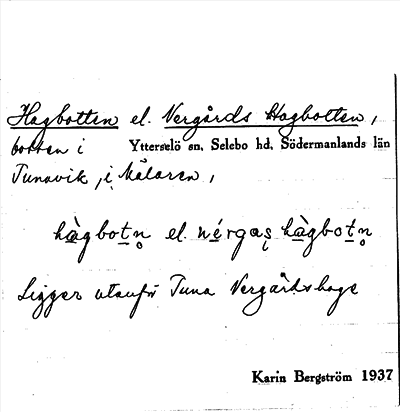 Hagbotten el. Vergårds Hagbotten,
botten i Ytterselö sn, Selebo hd, Södermanlands län
Tunavik, i Mälaren,
hàgbotn̥ el. nérgaș hàgbotn̥
Ligger utanför Tuna Vergårdshage
Karin Bergström 1937